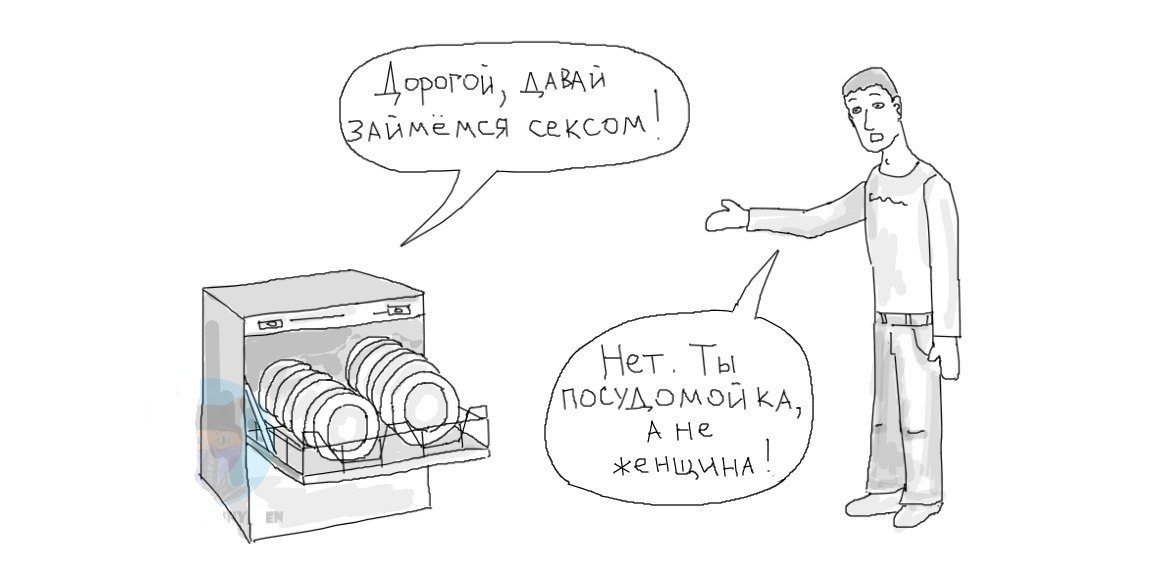 Дорогой, давай
займёмся сексом!
Нет. Ты
посудомойка,
а не
женщина!